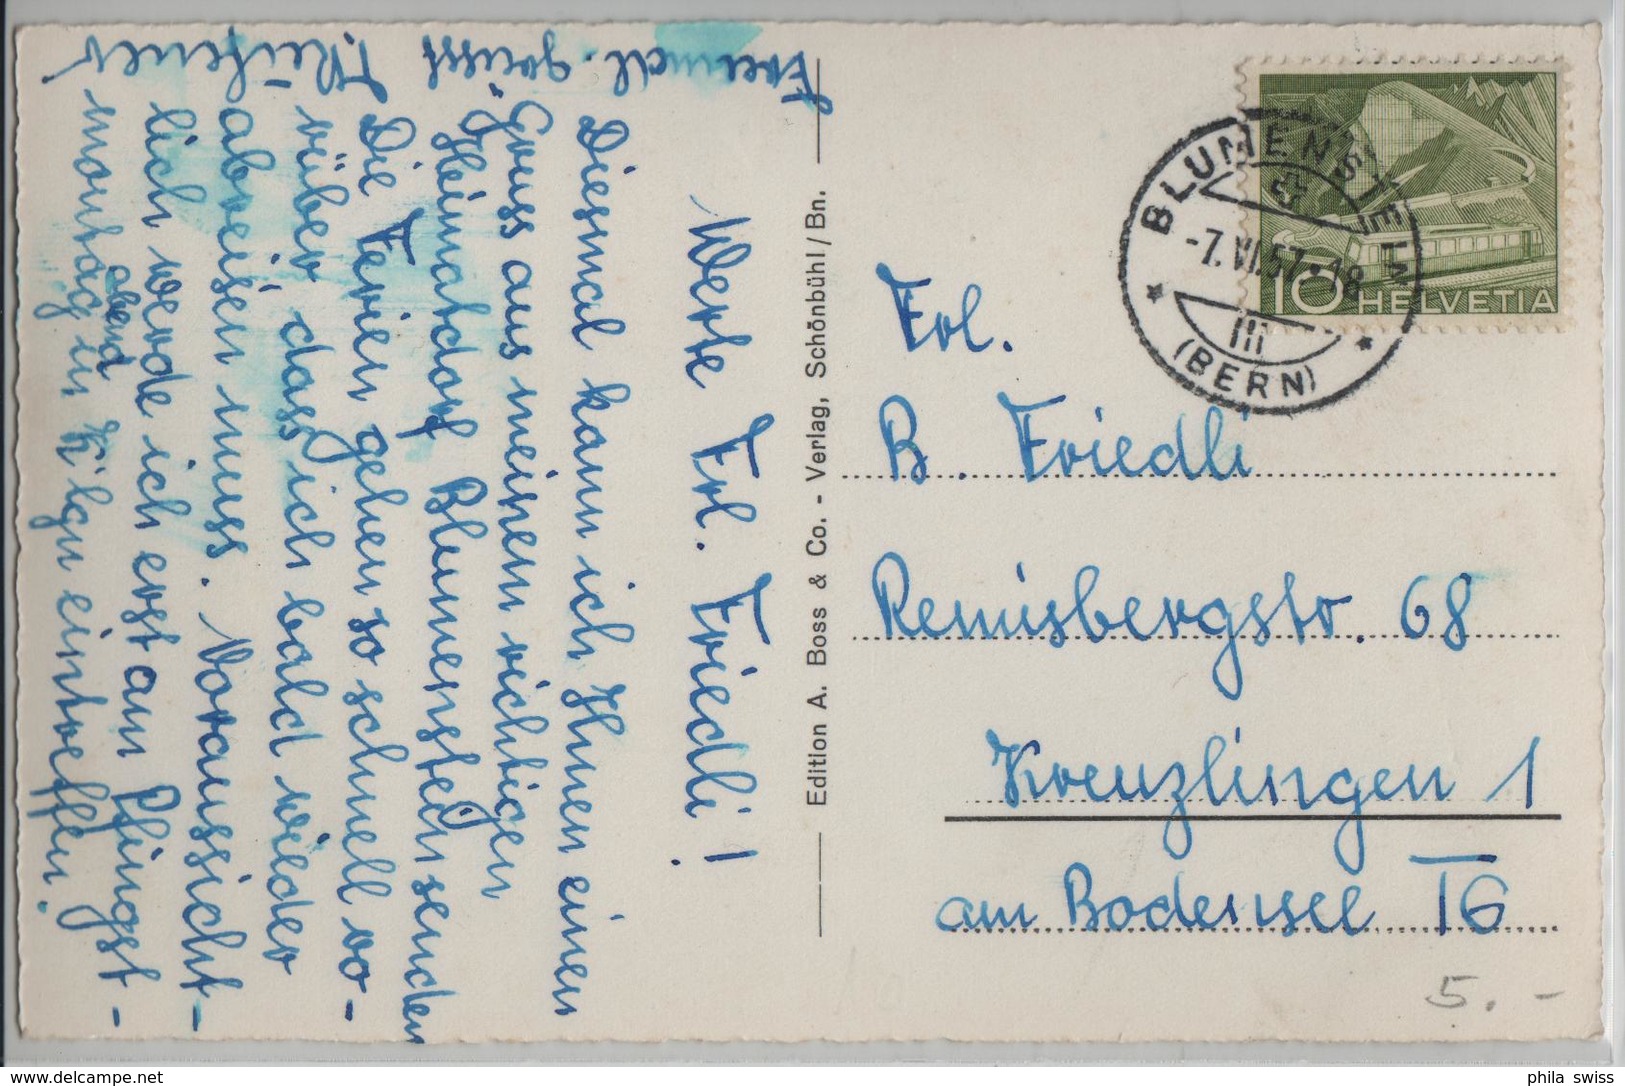 Werte Frl. Friedli!
Diesmal kann ich Ihnen einen
Gruss aus meinem richtigen
"Heimatdorf" Blumenstein senden
Die Ferien gehen so schnell vo-
rüber dass ich bald wieder
abreisen muss. Voraussicht-
lich werde ich erst am Pfingst-
montag abend in K'lgn eintreffen.
Freundl. grüsst
Edition A. Boss & Co. - Verlag, Schönbühl / Bn.
BLUMENSTEIN
-7.VI.57·18
III
(BERN)
10 HELVETIA
Frl.
B. Friedli
Remisbergstr. 68
Kreuzlingen 1
am Bodensee TG
5.-
phila_swiss